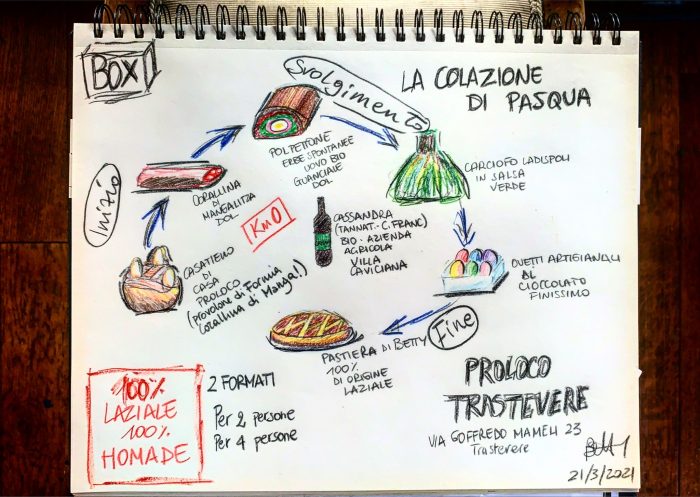 BOX
Svolgimento
LA COLAZIONE
DI PASQUA
Inizio
CORALLINA
DI
MANGALITZA
DOL
POLPETTONE
ERBE SPONTANEE
UOVO BIO
GUANCIALE
DOL
CARCIOFO LADISPOLI
IN SALSA
VERDE
Km0
CASATIELLO
DI
CASA
PROLOCO
(Provolone di Formia
Corallina di Mangal.)
CASSANDRA
(TANNAT.-C.FRANC)
BIO - AZIENDA
AGRICOLA
VILLA
CAVICIANA
OVETTI ARTIGIANALI
AL
CIOCCOLATO
FINISSIMO
Fine
PASTIERA DI BETTY
100%
DI ORIGINE
LAZIALE
100%
LAZIALE
100%
HOMADE
2 FORMATI
Per 2 persone
Per 4 persone
PROLOCO
TRASTEVERE
VIA GOFFREDO MAMELI 23
Trastevere
21/3/2021